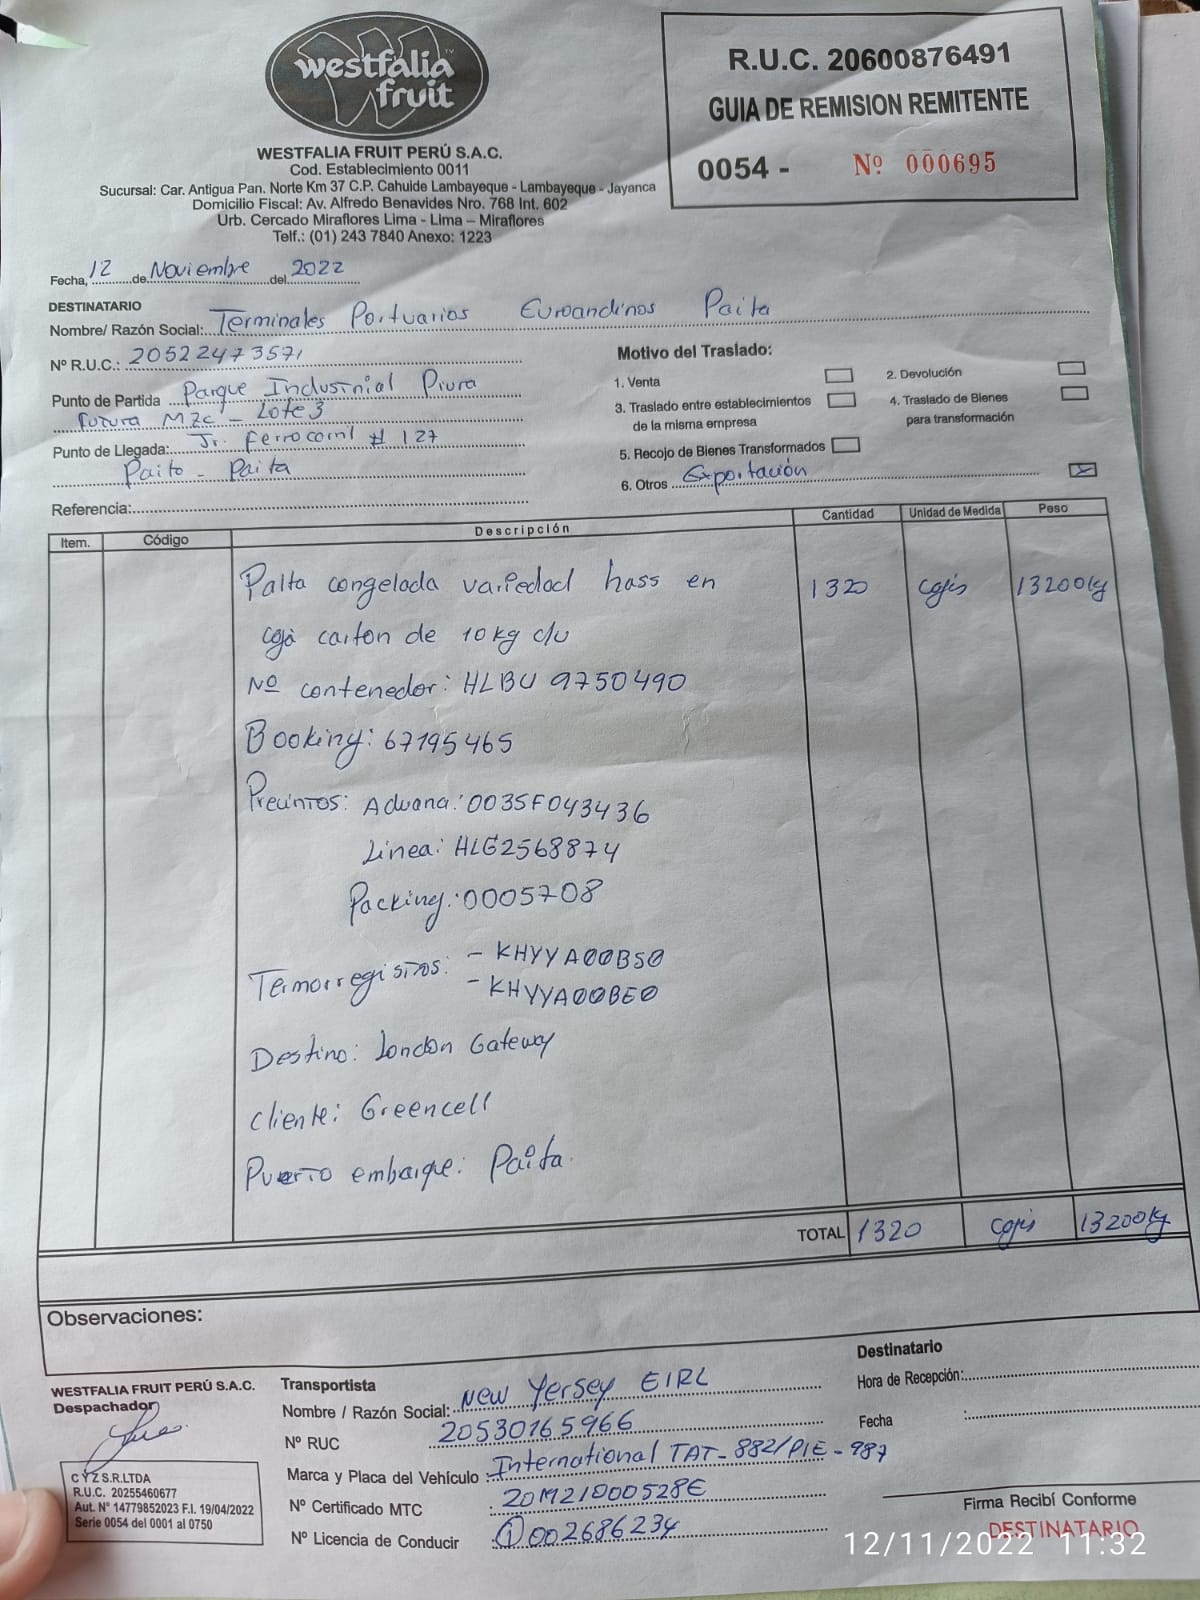 westfalia
fruit
TM
WESTFALIA FRUIT PERÚ S.A.C.
Cod. Establecimiento 0011
Sucursal: Car. Antigua Pan. Norte Km 37 C.P. Cahuide Lambayeque - Lambayeque - Jayanca
Domicilio Fiscal: Av. Alfredo Benavides Nro. 768 Int. 602
Urb. Cercado Miraflores Lima - Lima – Miraflores
Telf.: (01) 243 7840 Anexo: 1223
R.U.C. 20600876491
GUIA DE REMISION REMITENTE
0054 - Nº 000695
Fecha, 12 de Noviembre del 2022
DESTINATARIO
Nombre/ Razón Social: Terminales Portuarios Euroandinos Paita
Nº R.U.C.: 20522473571
Punto de Partida Parque Industrial Piura
Futura MZc - Lote 3
Punto de Llegada: Jr. Ferrocarril # 127
Paita - Paita
Referencia:
Motivo del Traslado:
1. Venta
2. Devolución
3. Traslado entre establecimientos
de la misma empresa
4. Traslado de Bienes
para transformación
5. Recojo de Bienes Transformados
6. Otros Exportación
Item. Código Descripción Cantidad Unidad de Medida Peso
Palta congelada variedad hass en 1320 cajas 13200kg
caja carton de 10kg c/u
Nº contenedor: HLBU 9750490
Booking: 67195465
Precintos: Aduana: 0035F043436
Linea: HLG2568874
Packing: 0005708
Termorregistros: - KHYYA00BS0
- KHYYA00BE0
Destino: London Gateway
Cliente: Greencell
Puerto embarque: Paita.
TOTAL 1320 cajas 13200kg
Observaciones:
WESTFALIA FRUIT PERÚ S.A.C.
Despachador
C Y Z S.R.LTDA
R.U.C. 20255460677
Aut. N° 14779852023 F.I. 19/04/2022
Serie 0054 del 0001 al 0750
Transportista
Nombre / Razón Social: New Yersey EIRL
Nº RUC 20530165966
Marca y Placa del Vehículo : International TAT-882/PIE-987
Nº Certificado MTC : 20M21000528E
Nº Licencia de Conducir : Q002686234
Destinatario
Hora de Recepción:
Fecha :
Firma Recibí Conforme
DESTINATARIO
12/11/2022 11:32